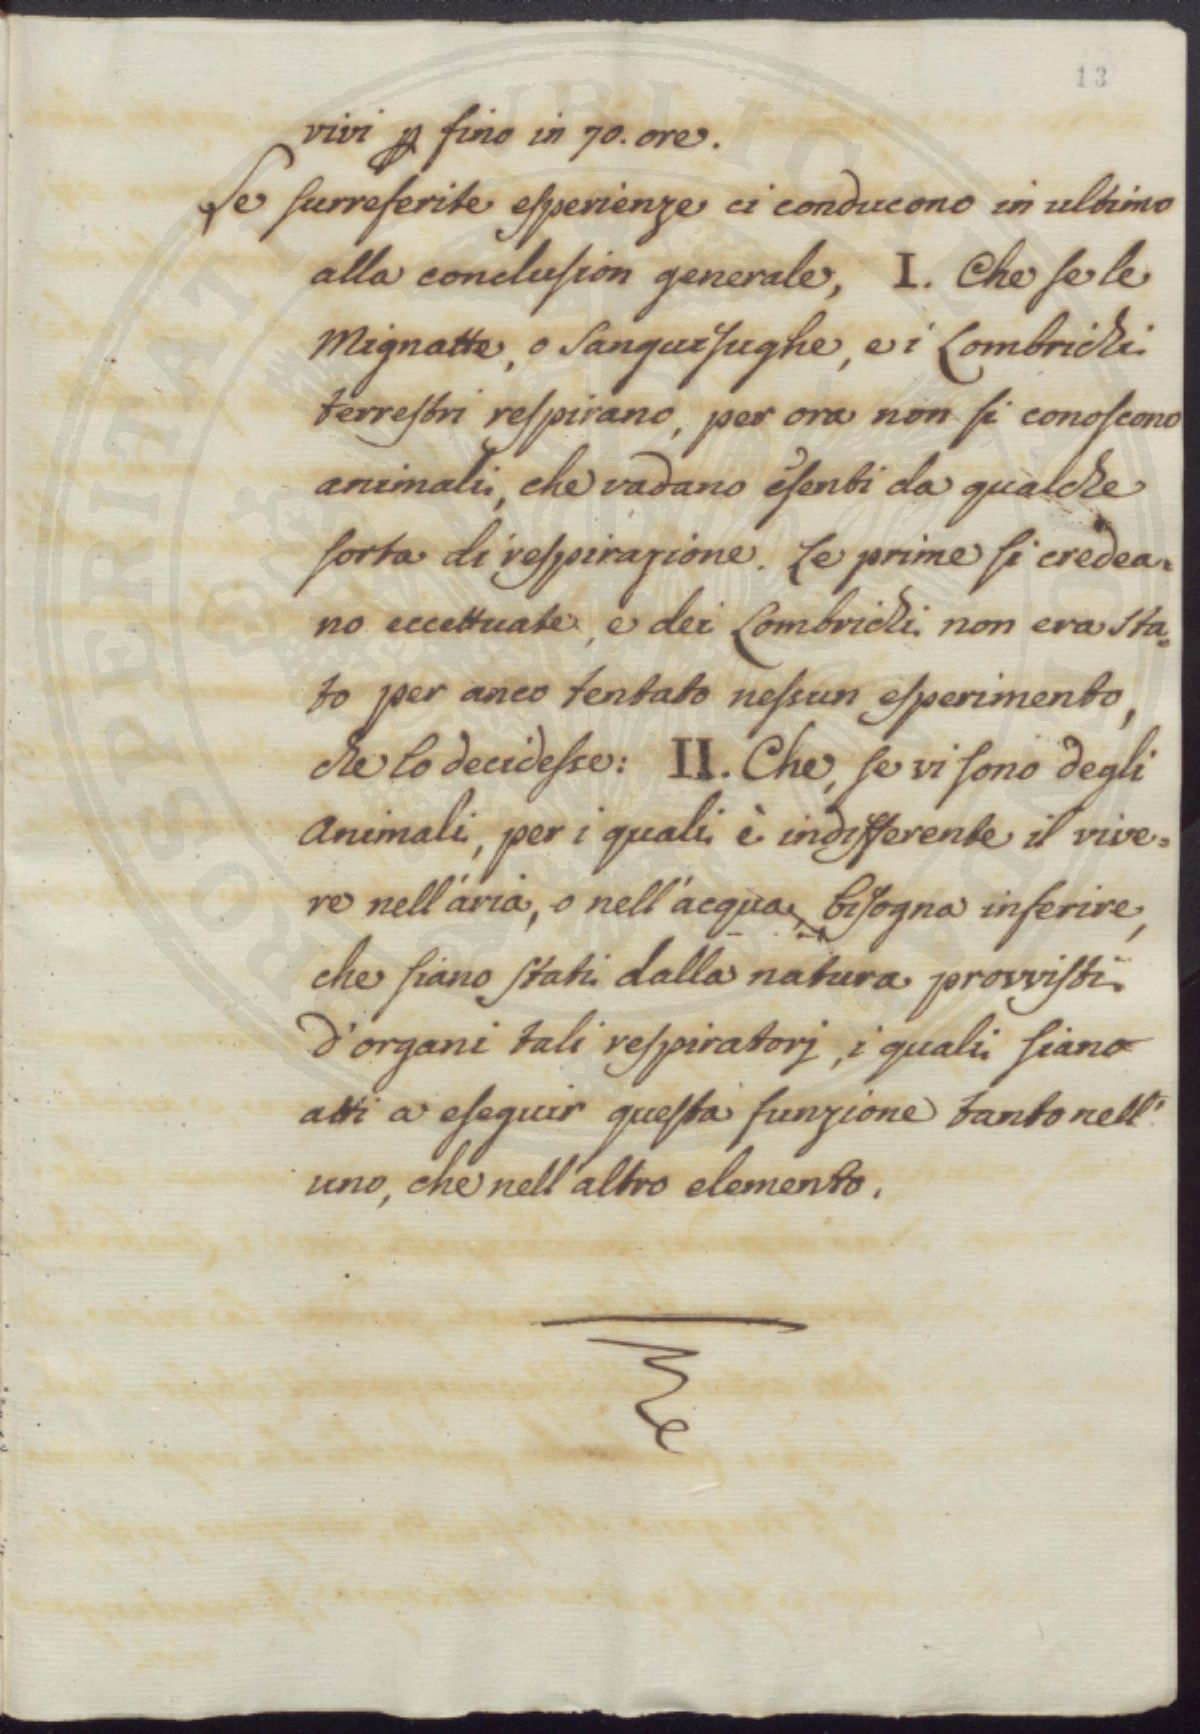 13
vivi ꝑ fino in 70. ore.
Le surreferite esperienze ci conducono in ultimo
alla conclusion generale, I. Che se le
Mignatte, o Sanguisughe, e i Lombrichi
terrestri respirano, per ora non si conoscono
animali, che vadano esenti da qualche
sorta di respirazione. Le prime si credea=
no eccettuate, e dei Lombrichi non era sta=
to per anco tentato nessun esperimento,
che lo decidesse: II. Che, se vi sono degli
Animali, per i quali è indifferente il vive=
re nell'aria, o nell'acqua, bisogna inferire,
che siano stati dalla natura provvisti
d'organi tali respiratorj, i quali siano
atti a eseguir questa funzione tanto nell'
uno, che nell'altro elemento.
PROSPERITATI PUBLICAE